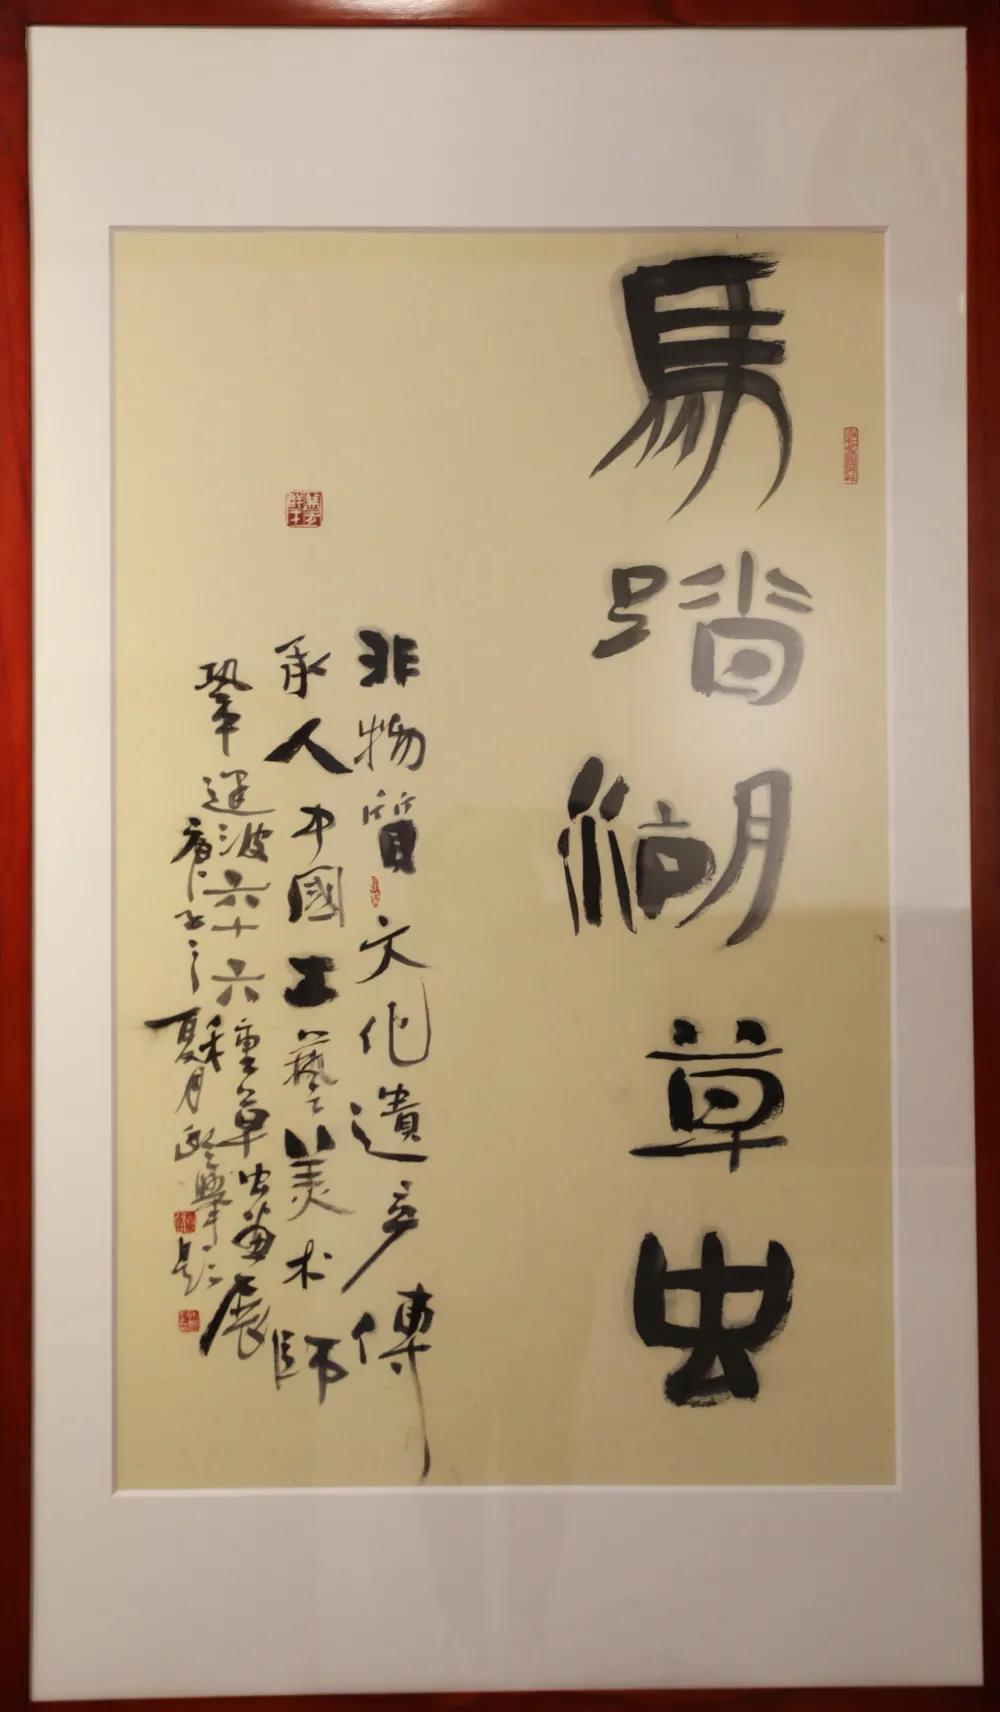 馬踏湖草虫
非物質文化遺產傳
承人中國工藝美术師
鞏運波六十六種草虫畫展
夏月
題